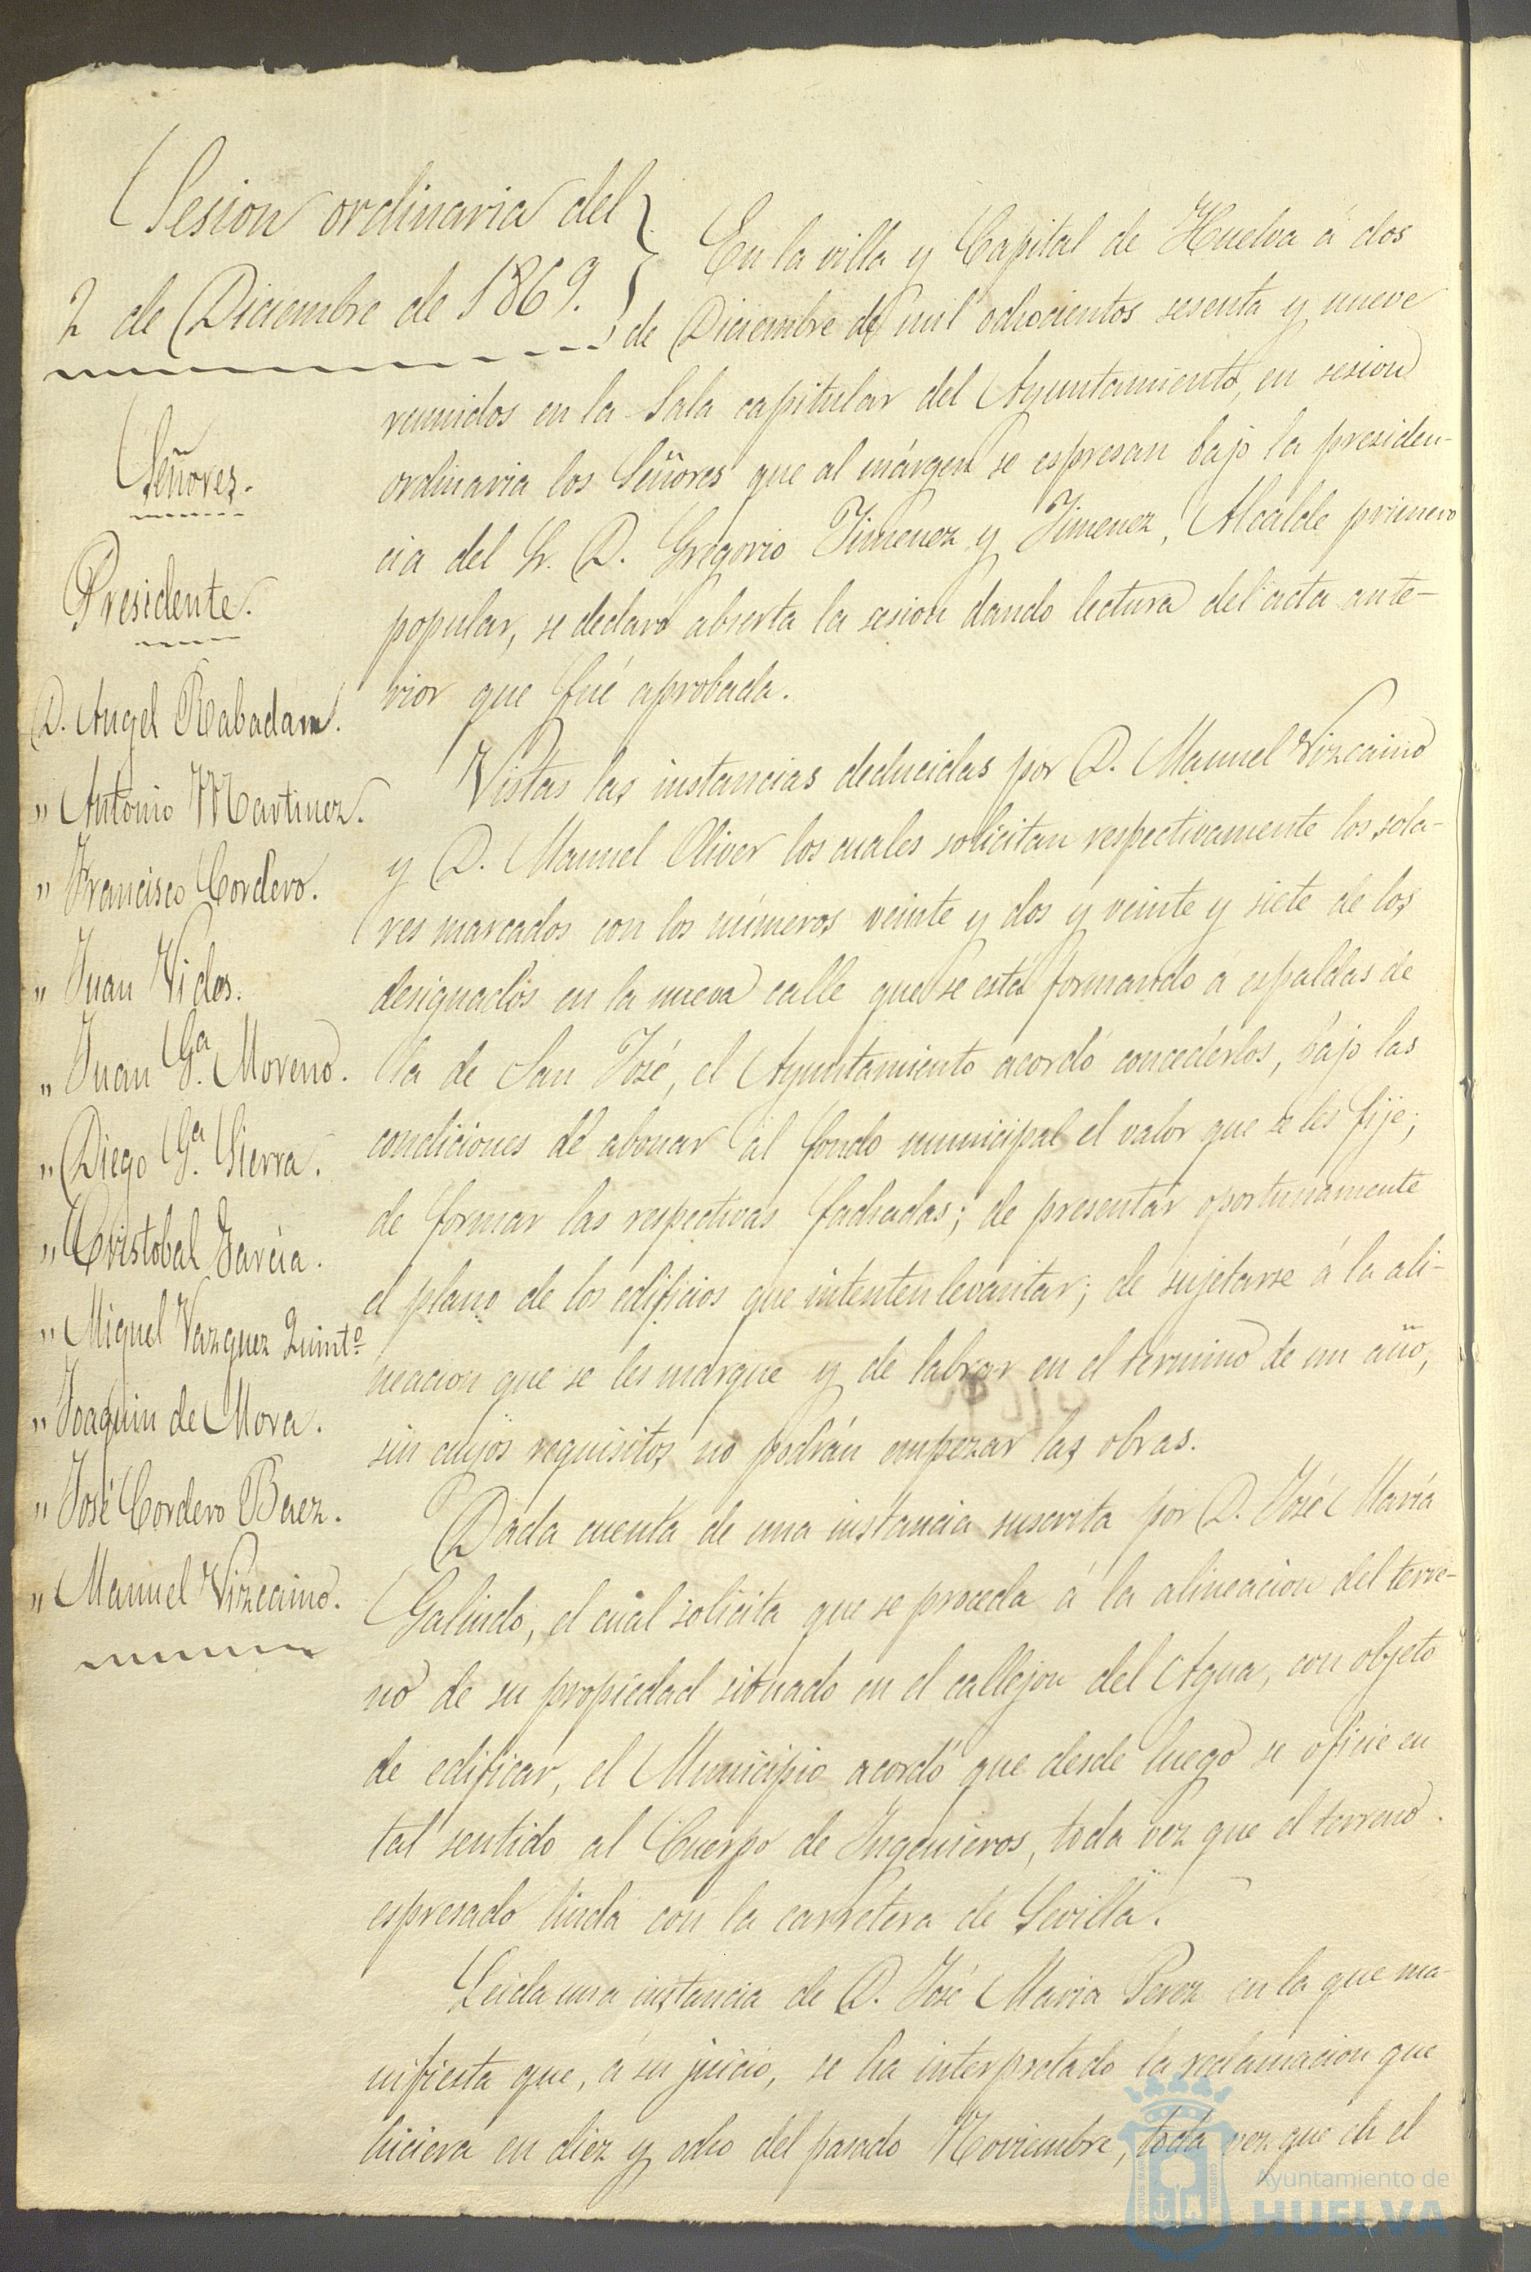 Sesion ordinaria del
2 de Diciembre de 1869.
Señores.
Presidente.
D. Angel Rabadan.
" Antonio Martinez.
" Francisco Cordero.
" Juan Vides.
" Juan Gª. Moreno.
" Diego Gª. Sierra.
" Cristobal Garcia.
" Miguel Vazquez Quintº
" Joaquin de Mora.
" José Cordero Baez.
" Manuel Vizcaino.
En la villa y Capital de Huelva á dos
de Diciembre de mil ochocientos sesenta y nueve
reunidos en la Sala capitular del Ayuntamiento, en sesion
ordinaria los Señores que al márgen se espresan bajo la presiden-
cia del Sr. D. Gregorio Jimenez y Jimenez, Alcalde primero
popular, se declaró abierta la sesion dando lectura del acta ante-
rior que fué aprobada.
Vistas las instancias deducidas por D. Manuel Vizcaino
y D. Manuel Oliver los cuales solicitan respectivamente los sola-
res marcados con los números veinte y dos y veinte y siete de los
designados en la nueva calle que se está formando á espaldas de
la de San José, el Ayuntamiento acordó concederlos, bajo las
condiciones de abonar al fondo municipal el valor que se les fije;
de formar las respectivas fachadas; de presentar oportunamente
el plano de los edificios que intenten levantar; de sujetarse á la ali-
neacion que se les marque y de labrar en el término de un año,
sin cuyos requisitos no podrán empezar las obras.
Dada cuenta de una instancia suscrita por D. José Maria
Galindo, el cual solicita que se proceda á la alineacion del terre-
no de su propiedad situado en el callejon del Agua, con objeto
de edificar, el Municipio acordó que desde luego se oficie en
tal sentido al Cuerpo de Ingenieros, toda vez que el terreno
espresado linda con la carretera de Sevilla.
Leida una instancia de D. José Maria Perez en la que ma-
nifiesta que, á su juicio, se ha interpretado la reclamacion que
hiciera en diez y ocho del pasado Noviembre, toda vez que en el
Ayuntamiento de
HUELVA